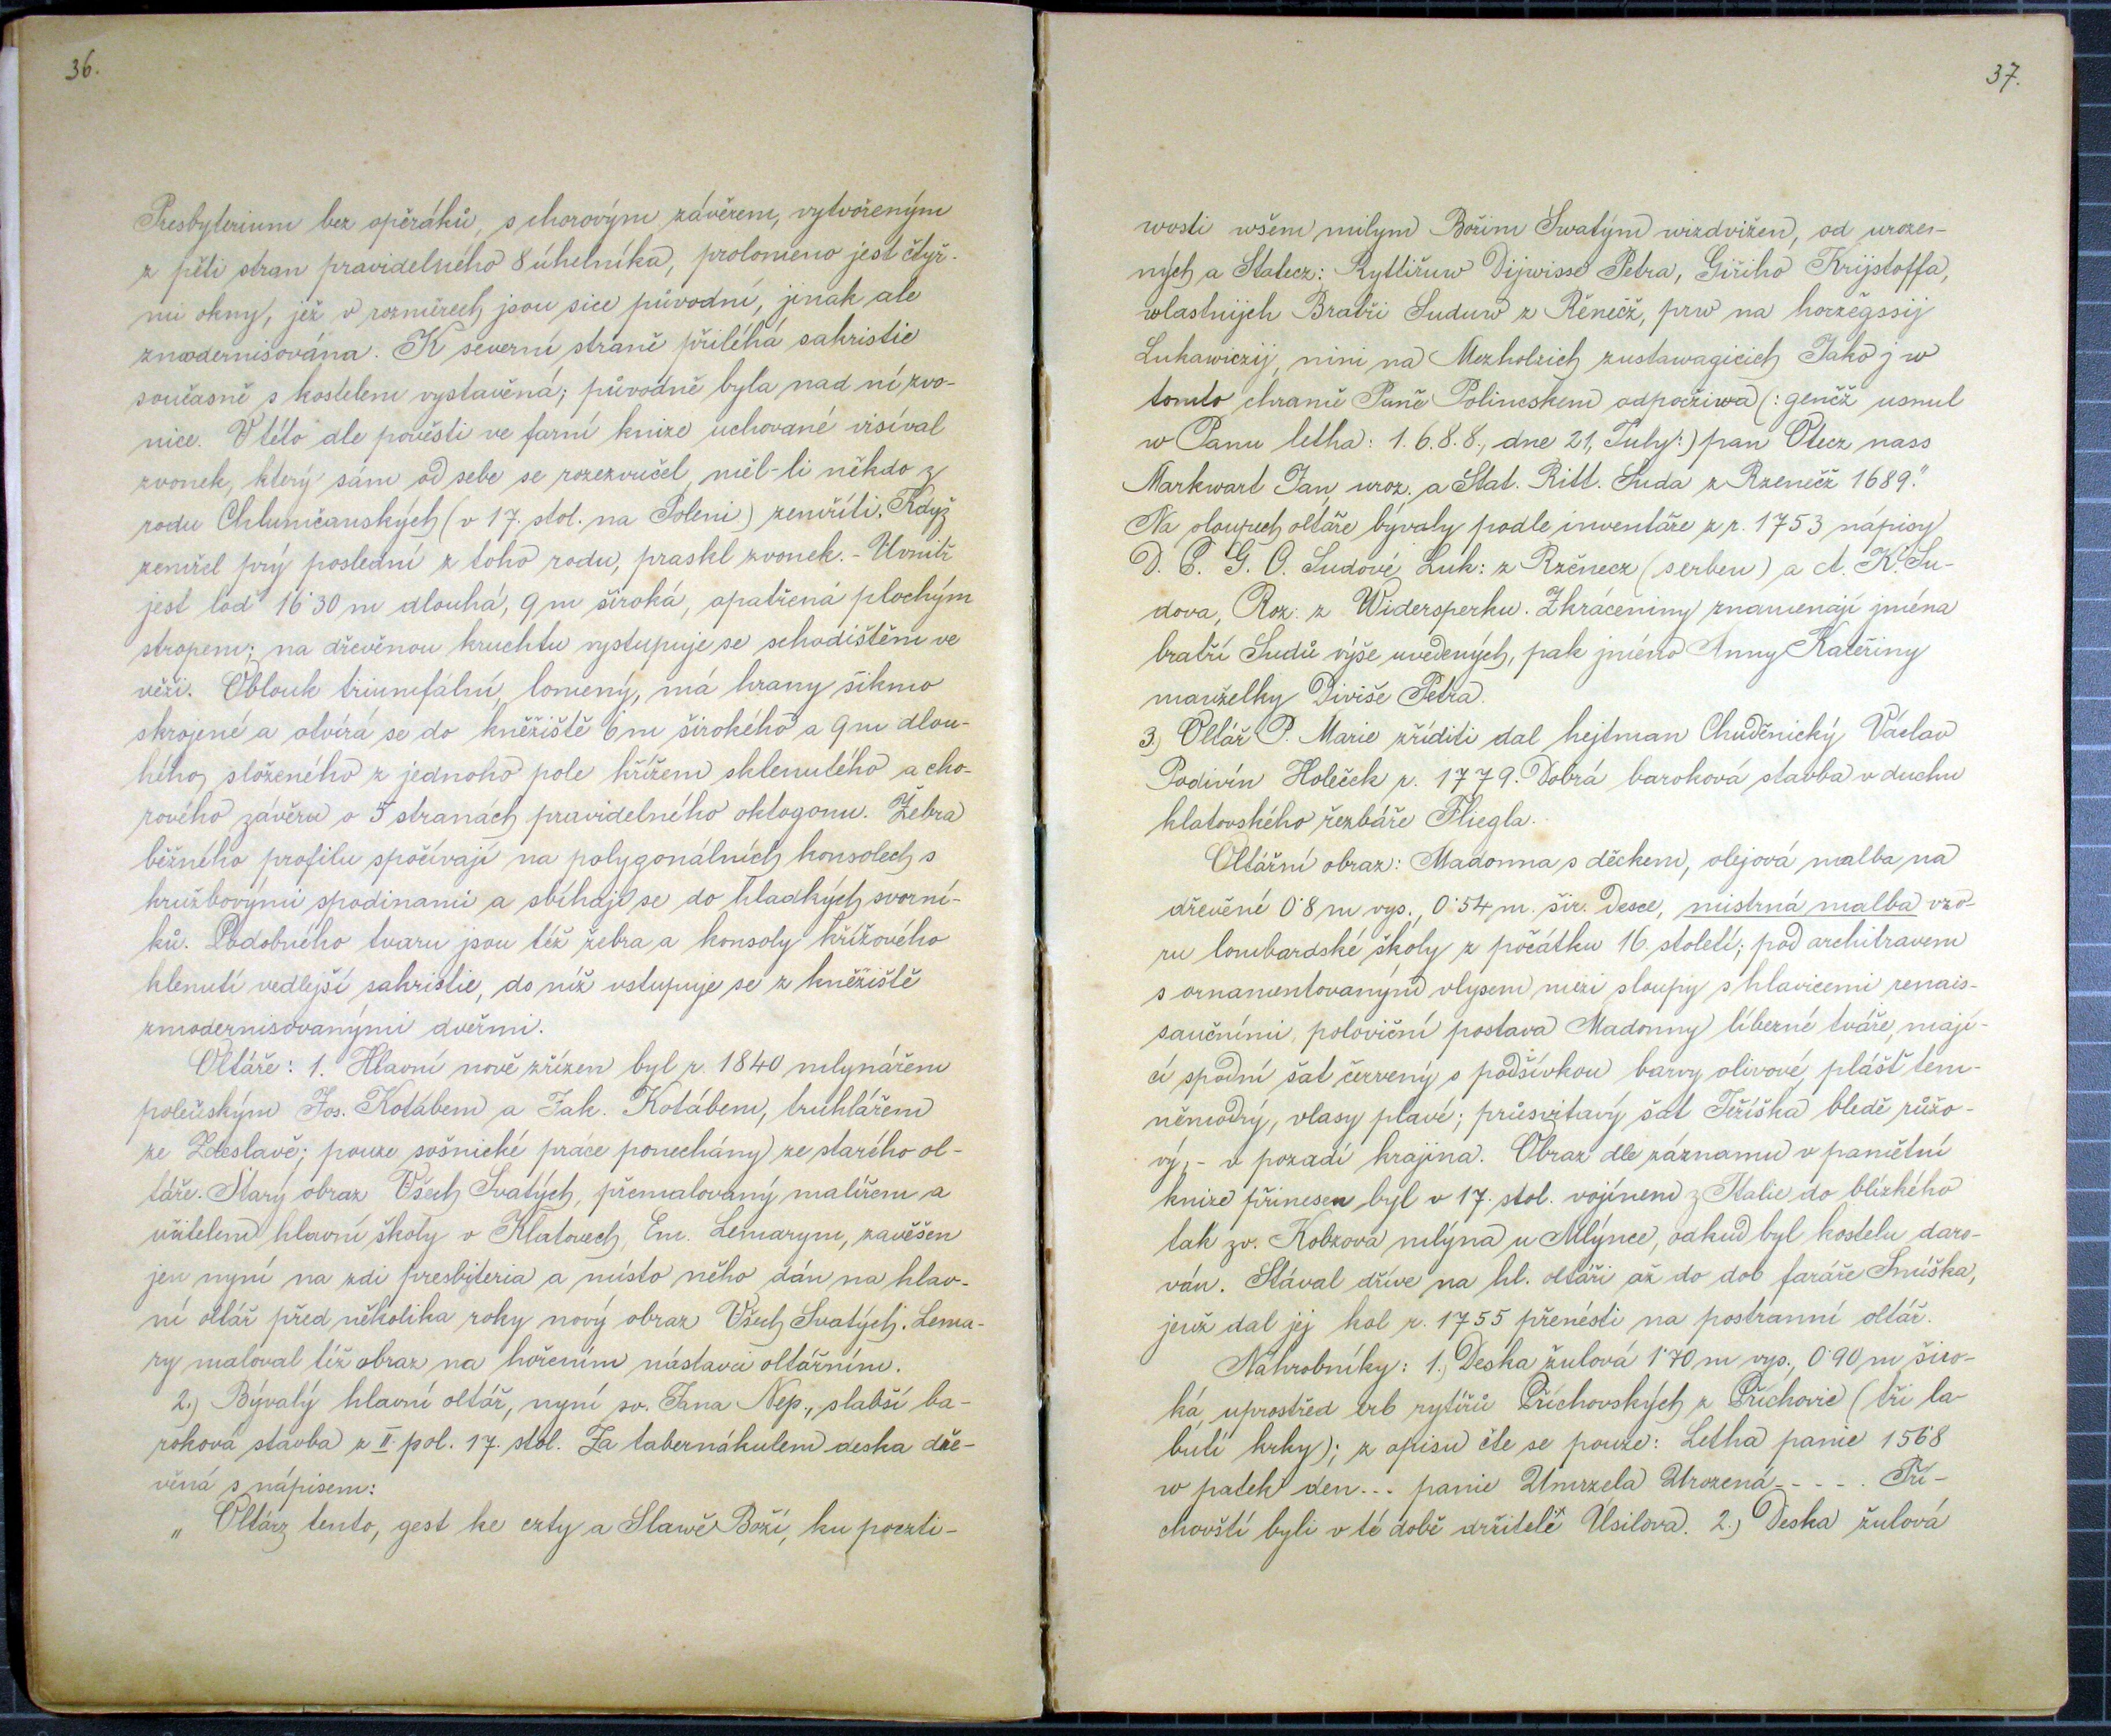 36.
Presbyterium bez opěráků, s chorovým závěrem, vytvořeným
z pěti stran pravidelného 8 úhelníka, prolomeno jest čtyř-
mi okny, jež v rozměrech jsou sice původní, jinak ale
zmodernisována. K severní straně přiléhá sakristie
současně s kostelem vystavěná; původně byla nad ní zvo-
nice. V této dle pověsti ve farní knize uchované visíval
zvonek, který sám od sebe se rozezvučel, měl-li někdo z
rodu Chlumčanských (v 17. stol. na Poleni) zemříti. Když
zemřel prý poslední z toho rodu, praskl zvonek. - Uvnitř
jest loď 16·30 m dlouhá, 9 m široká, opatřená plochým
stropem; na dřevěnou kruchtu vystupuje se schodištěm ve
věži. Oblouk triumfální, lomený, má hrany šikmo
skrojené a otvírá se do kněžiště 6 m širokého a 9 m dlou-
hého, složeného z jednoho pole křížem sklenutého a cho-
rového závěru o 5 stranách pravidelného oktogonu. Žebra
běžného profilu spočívají na polygonálních konsolech s
kružbovými spodinami a sbíhají se do hladkých svorní-
ků. Podobného tvaru jsou též žebra a konsoly křížového
klenutí vedlejší sakristie, do níž vstupuje se z kněžiště
zmodernisovanými dveřmi.
Oltáře: 1. Hlavní nově zřízen byl r. 1840 mlynářem
poleňským Jos. Kotábem a Jak. Kotábem, truhlářem
ze Zdeslavě; pouze sošnické práce ponechány ze starého ol-
táře. Starý obraz Všech Svatých, přemalovaný malířem a
učitelem hlavní školy v Klatovech, Em. Lemarym, zavěšen
jen nyní na zdi presbyteria a místo něho dán na hlav-
ní oltář před několika roky nový obraz Všech Svatých. Lema-
ry maloval též obraz na hořením nástavci oltářním.
2.) Bývalý hlavní oltář, nyní sv. Jana Nep., slabší ba-
roková stavba z II. pol. 17. stol. Za tabernákulem deska dře-
věná s nápisem:
„Oltárz tento, gest ke czty a Slawě Boží, ku poczti-
37.
wosti wšem milym Božim Swatým wizdvižen, od urozen-
ných a Statecz: Rytlířuw Dijwisse Petra, Giřiho Krijstoffa,
wlastnijch Bratři Suduw z Řěnečž, prw na horzěgssij
Lukawiczij, nini na Mezholzich zustawagicich Jako j w
tomto chramě Paně Polineskem odpocžiwa (: genčž usnul
w Panu letha: 1.6.8.8., dne 21, July:) pan Otecz nass
Markwart Jan, uroz. a Stat. Ritt. Suda z Rzenečž 1689."
Na sloupech oltáře bývaly podle inventáře z r. 1753 nápisy
D. P. G. O. Sudové Luk: z Rzěnecz (s erbem) a A. K. Su-
dova, Roz. z Widersperku. Zkráceniny znamenají jména
bratří Sudů výše uvedených, pak jméno Anny Kateřiny
manželky Diviše Petra.
3.) Oltář P. Marie zříditi dal hejtman Chuděnický Václav
Podivín Holeček r. 1779. Dobrá baroková stavba v duchu
klatovského řezbáře Fliegla.
Oltářní obraz: Madonna s děckem, olejová malba na
dřevěné 0·8 m vys., 0·54 m. šir. Desce, mistrná malba vzo-
ru lombardské školy z počátku 16. století; pod architravem
s ornamentovaným vlysem mezi sloupy s hlavicemi renais-
sančními, poloviční postava Madonny líbezné tváře, mají-
cí spodní šat červený s podšívkou barvy olivové, plášť tem-
němodrý, vlasy plavé; průsvitavý šat Ježíška bledě růžo-
vý, - v pozadí krajina. Obraz dle záznamu v pamětní
knize přinesen byl v 17. stol. vojínem z Italie do blízkého
tak zv. Kobzova mlýna u Mlýnce, odkud byl kostelu daro-
ván. Stával dříve na hl. oltáři až do dob faráře Smíška,
jenž dal jej kol r. 1755 přenésti na postranní oltář.
Náhrobníky: 1.) Deska žulová 1·70 m vys., 0·90 m širo-
ká, uprostřed erb rytířů Příchovských z Příchovic (tři la-
butí krky); z opisu čte se pouze: Letha panie 1568
w patek den... panie Umrzela Urozená- - - - . Pří-
chovští byli v té době držitelé Úsilova. 2.) Deska žulová